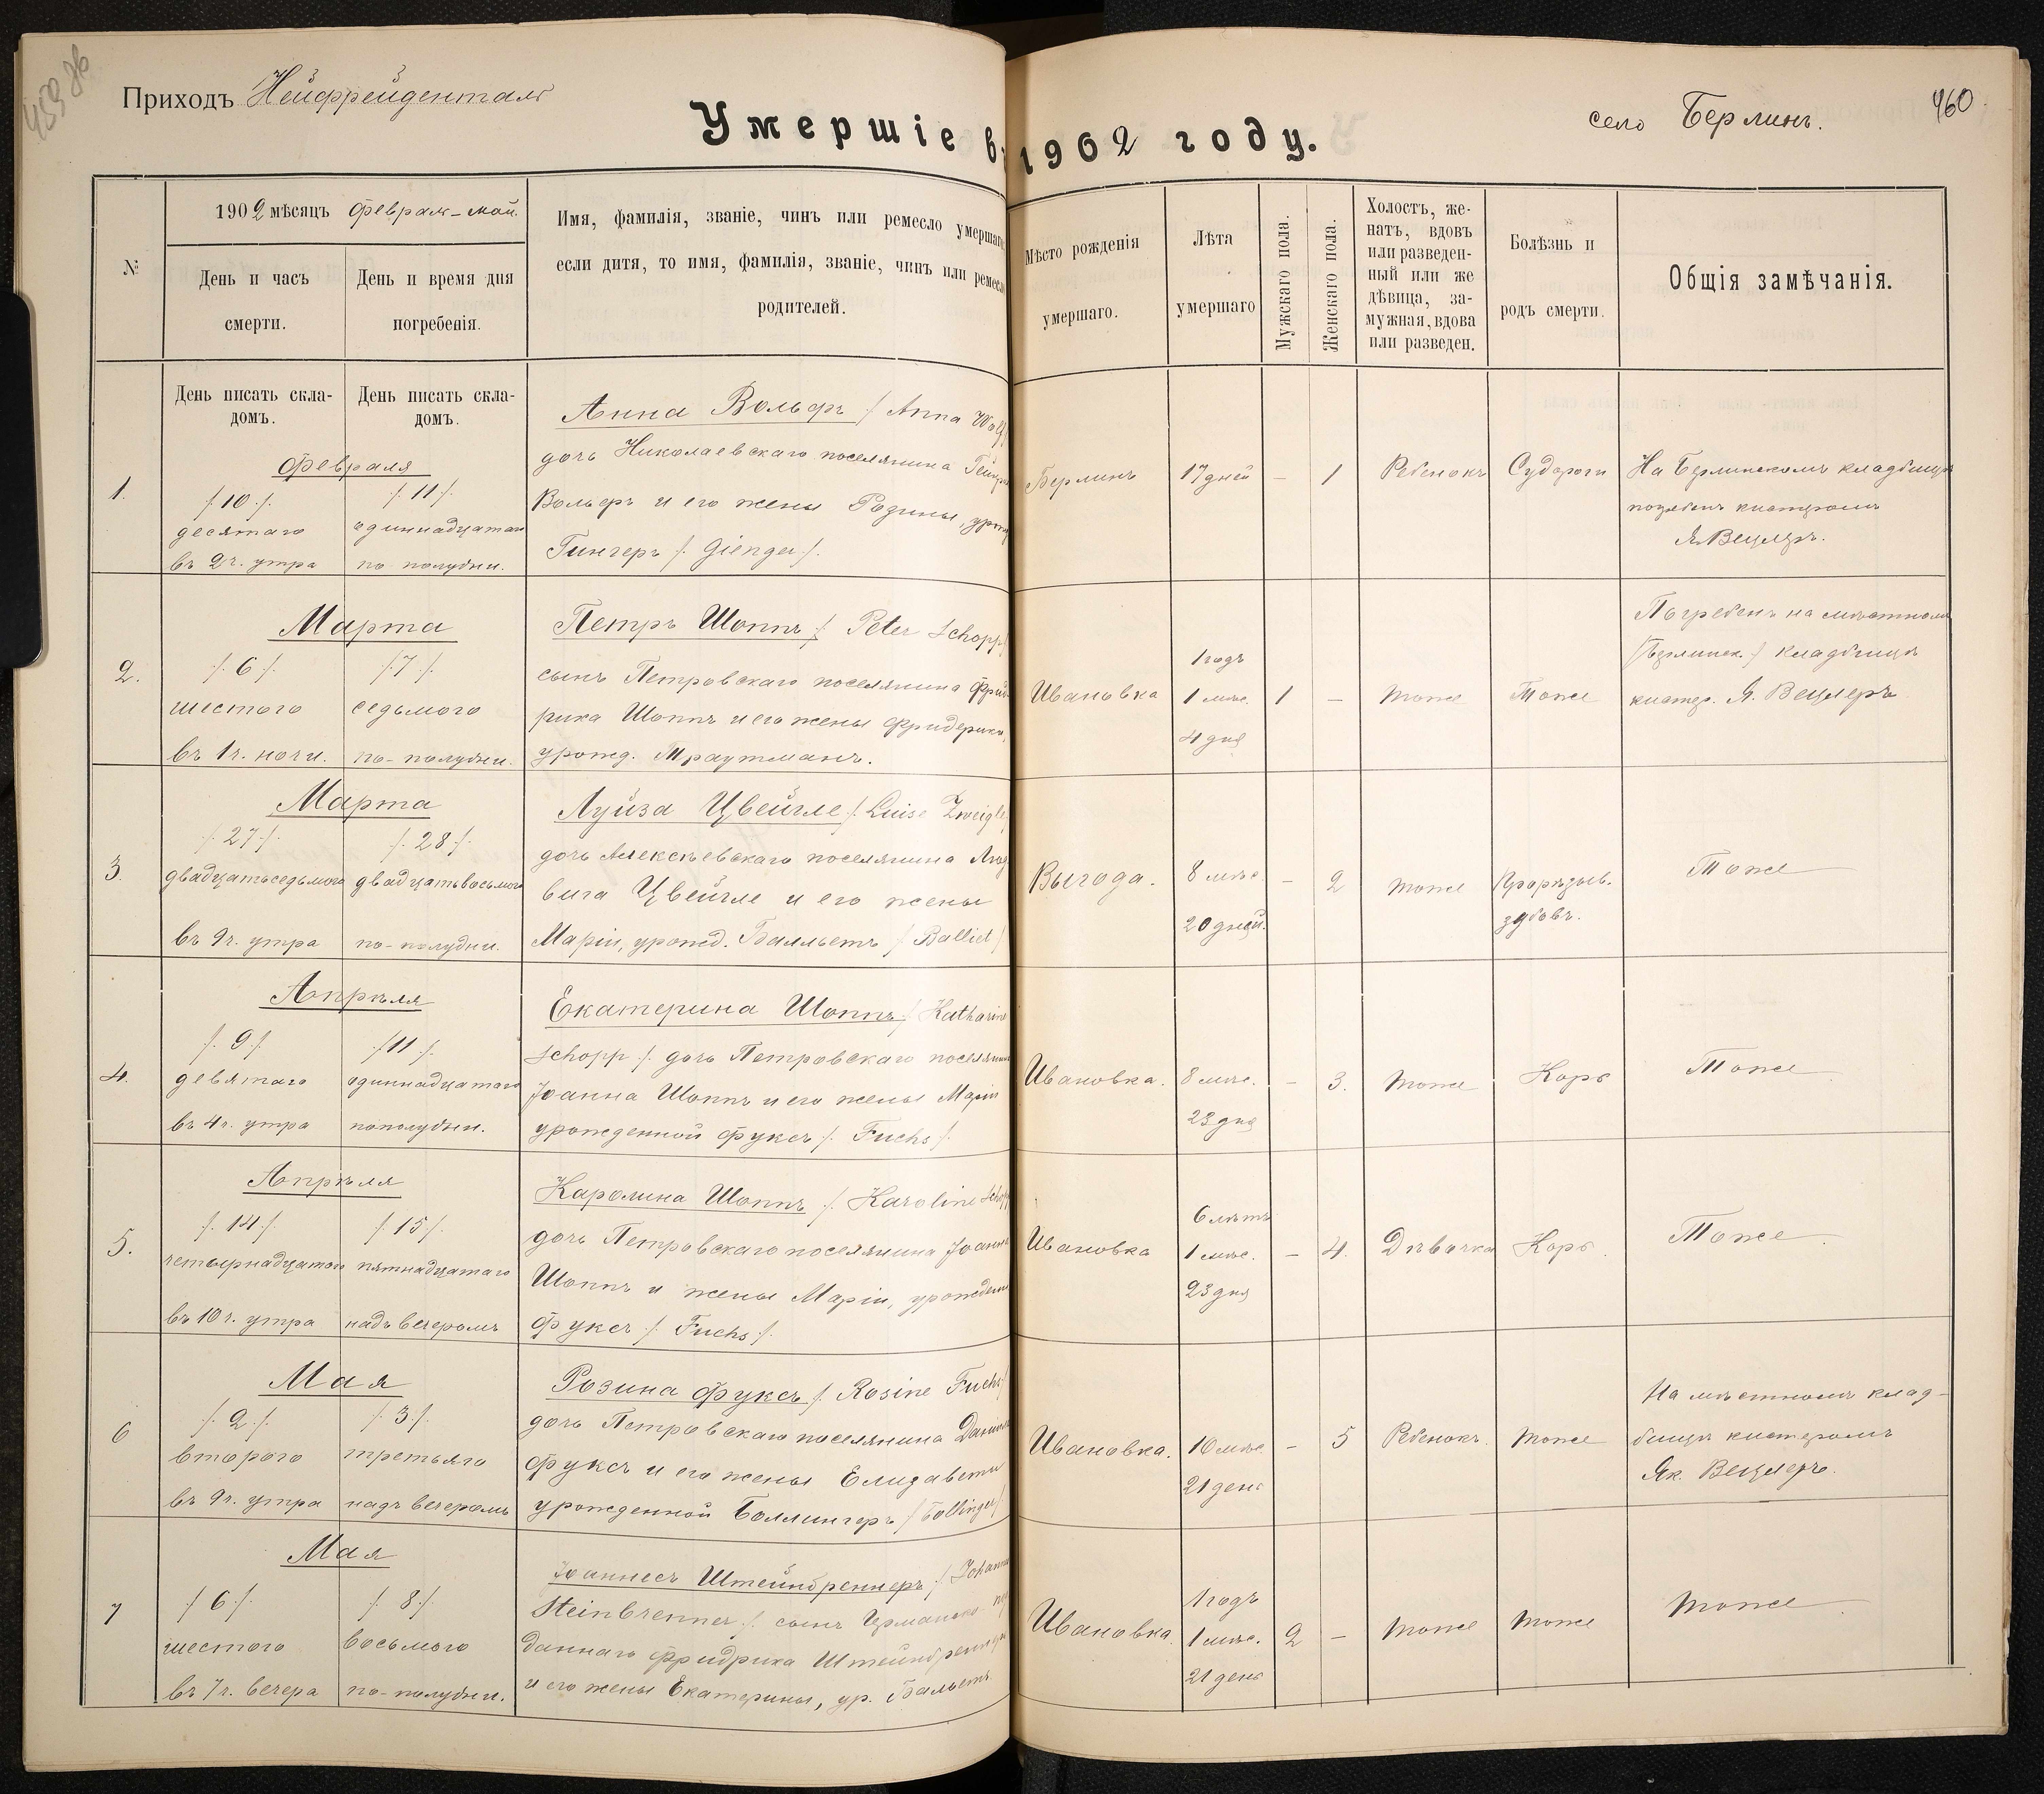 459 об
Приходъ Нейфрейденталь
Умершіе въ 1902 году.
село Берлинъ.
460
№
1902 мѣсяцъ Февраль-май.
День и часъ
смерти.
День и время дня
погребенія.
Имя, фамилія, званіе, чинъ или ремесло умершаго
если дитя, то имя, фамилія, званіе, чинъ или ремесло
родителей.
Мѣсто рожденія
умершаго.
Лѣта
умершаго
Мужскаго пола.
Женскаго пола.
Холостъ, же-
натъ, вдовъ
или разведен-
ный или же
дѣвица, за-
мужная, вдова
или разведен.
Болѣзнь и
родъ смерти.
Общія замѣчанія.
День писать скла-
домъ.
День писать скла-
домъ.
1.
Февраля
/.10./
десятаго
въ 2ч. утра
/.11./
одиннадцатаго
по полудни.
Анна Вольфъ /. Anna Wolf
дочь Николаевскаго поселянина
Вольфъ и его жены Розины, урожд
Гингеръ /. Gienger /.
Берлинъ
17 дней
-
1
Ребенокъ
Судороги
На Берлинскомъ кладбищѣ
погребенъ кистеромъ
Я. Вецлеръ.
2.
Марта
/. 6 /.
шестого
въ 1ч. ночи.
/7./.
седьмого
по-полудни.
Петръ Шоппъ /. Peter Schopp/
сынъ Петровскаго поселянина Фрид-
рика Шоппъ и его жены Фридерики,
урожд. Траутманъ.
Ивановка
1 годъ
1 мѣс.
4 дня
1
-
тоже
Тоже
Погребенъ на мѣстномъ
/Берлинск./ кладбищѣ
кистер. Я. Вецлеръ
3.
Марта
/.27./.
двадцатьседьмого
въ 9ч. утра
/.28./.
двадцатьвосьмого
по-полудни.
Луйза Цвейгле /. Luise Zweigle
дочь Алексѣевскаго поселянина Люд
вига Цвейгле и его жены
Маріи, урожд. Балльетъ / Balliet /
Выгода.
8 мѣс.
20 дней.
-
2
тоже
Прорѣзыв.
зубовъ.
Тоже
4.
Апрѣля
/. 9 /.
девятаго
въ 4ч. утра
/11./.
одиннадцатаго
пополудни.
Екатерина Шоппъ /. Katharine
Schopp /. дочь Петровскаго поселянина
Іоанна Шоппъ и его жены Маріи
урожденной Фуксъ /. Fuchs /.
Ивановка.
8 мѣс.
23 дня
-
3.
тоже
Корь
Тоже
5.
Апрѣля
/.14./.
четырнадцатаго
въ 10ч. утра
/.15./.
пятнадцатаго
надъ вечеромъ
Каролина Шоппъ /. Karoline Schopp
дочь Петровскаго поселянина Іоанна
Шоппъ и жены Маріи, урожден
Фуксъ /. Fuchs /.
Ивановка
6 лѣтъ
1 мѣс.
23 дня
-
4.
Дѣвочка
Корь.
Тоже
6
Мая
/. 2./.
второго
въ 9ч. утра
/. 3./.
третьяго
надъ вечеромъ
Розина Фуксъ /. Rosine Fuchs/
дочь Петровскаго поселянина Даніила
Фуксъ и его жены Елизаветы
урожденной Боллингеръ / Bollinger/
Ивановка.
10 мѣс
21 день
-
5
Ребенокъ.
тоже
На мѣстномъ клад-
бищѣ кистеромъ
Як. Вецлеръ.
7
Мая
/ 6./.
шестого
въ 7ч. вечера
/. 8./.
восьмого
по-полудни.
Іоаннесъ Штейнбреннеръ /. Johannes
Steinbrenner /. сынъ Германск. под
даннаго Фридриха Штейнбреннера
и его жены Екатерины, ур. Бальетъ.
Ивановка.
1 годъ
1 мѣс.
21 день
2
-
тоже
тоже
тоже